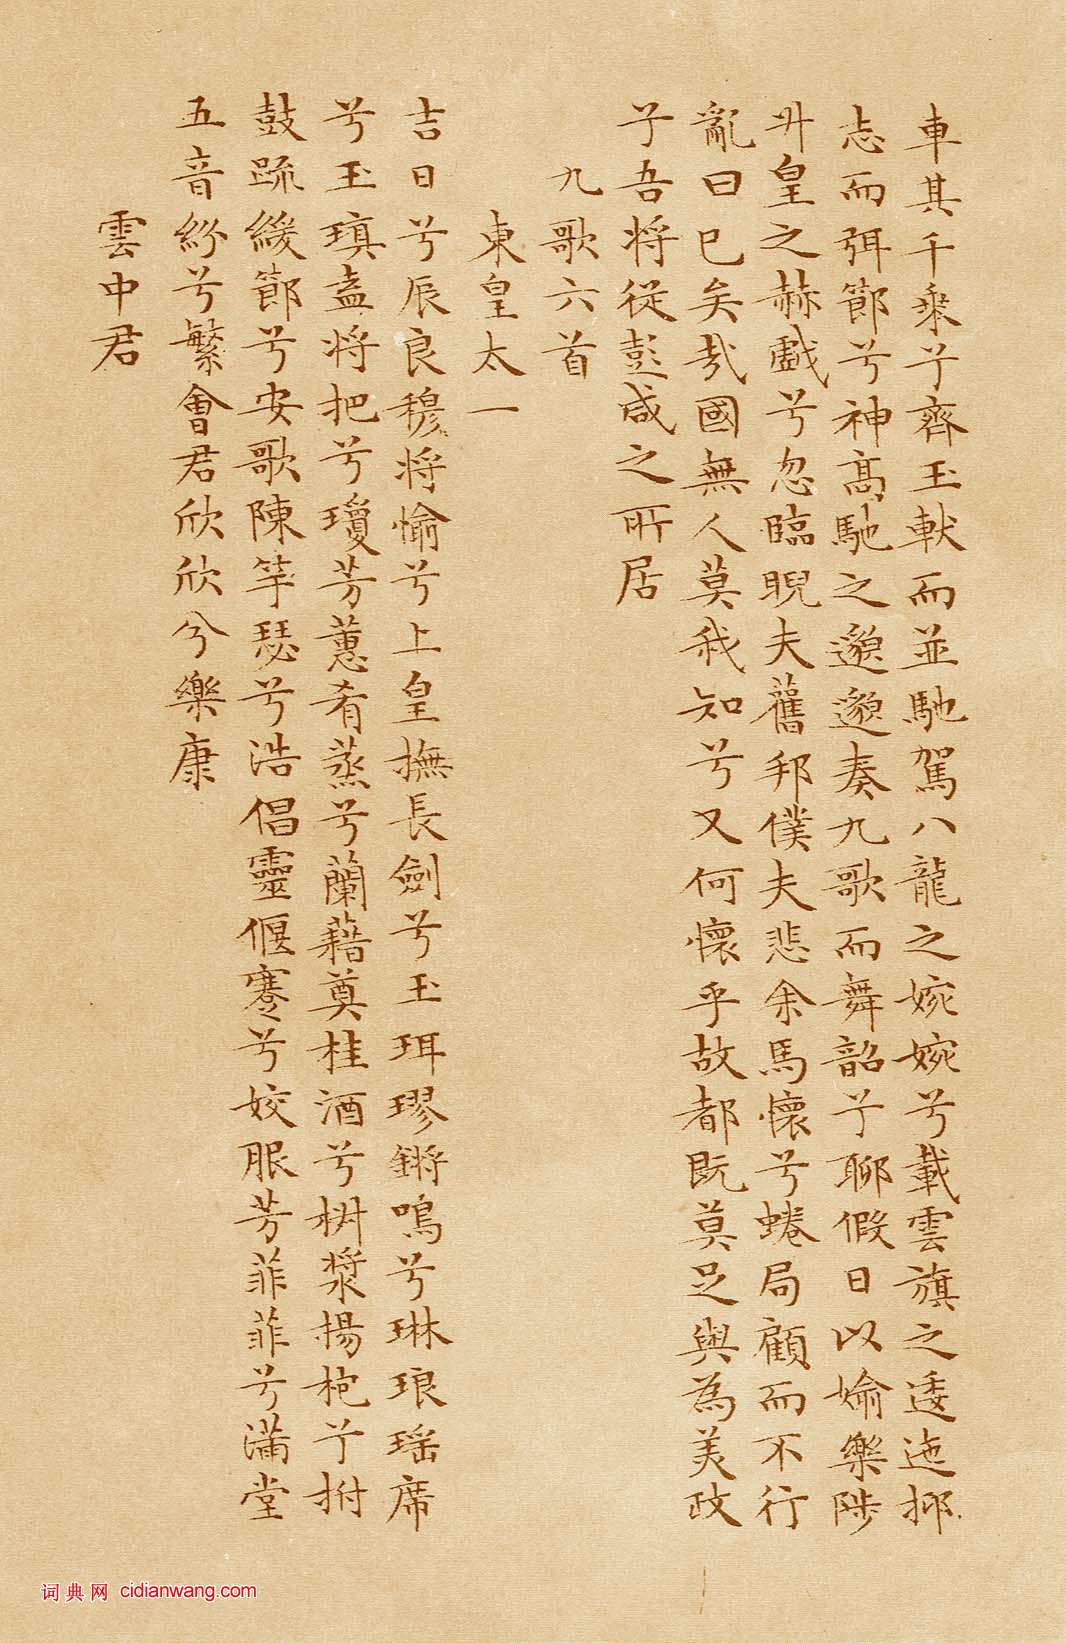 車其千乘兮齊玉軑而並馳駕八龍之婉婉兮載雲旗之逶迤抑
志而弭節兮神髙馳之邈邈奏九歌而舞韶兮聊假日以媮樂陟
升皇之赫戲兮忽臨睨夫舊邦僕夫悲余馬懷兮蜷局顧而不行
亂曰已矣哉國無人莫我知兮又何懷乎故都既莫足與為美政
兮吾將從彭咸之所居
九歌六首
東皇太一
吉日兮辰良穆將愉兮上皇撫長劍兮玉珥璆鏘鳴兮琳琅瑶席
兮玉瑱盍將把兮瓊芳蕙肴蒸兮蘭藉奠桂酒兮椒漿揚枹兮拊
鼓疏緩節兮安歌陳竽瑟兮浩倡靈偃蹇兮姣服芳菲菲兮滿堂
五音紛兮繁會君欣欣兮樂康
雲中君
词典网 cidianwang.com